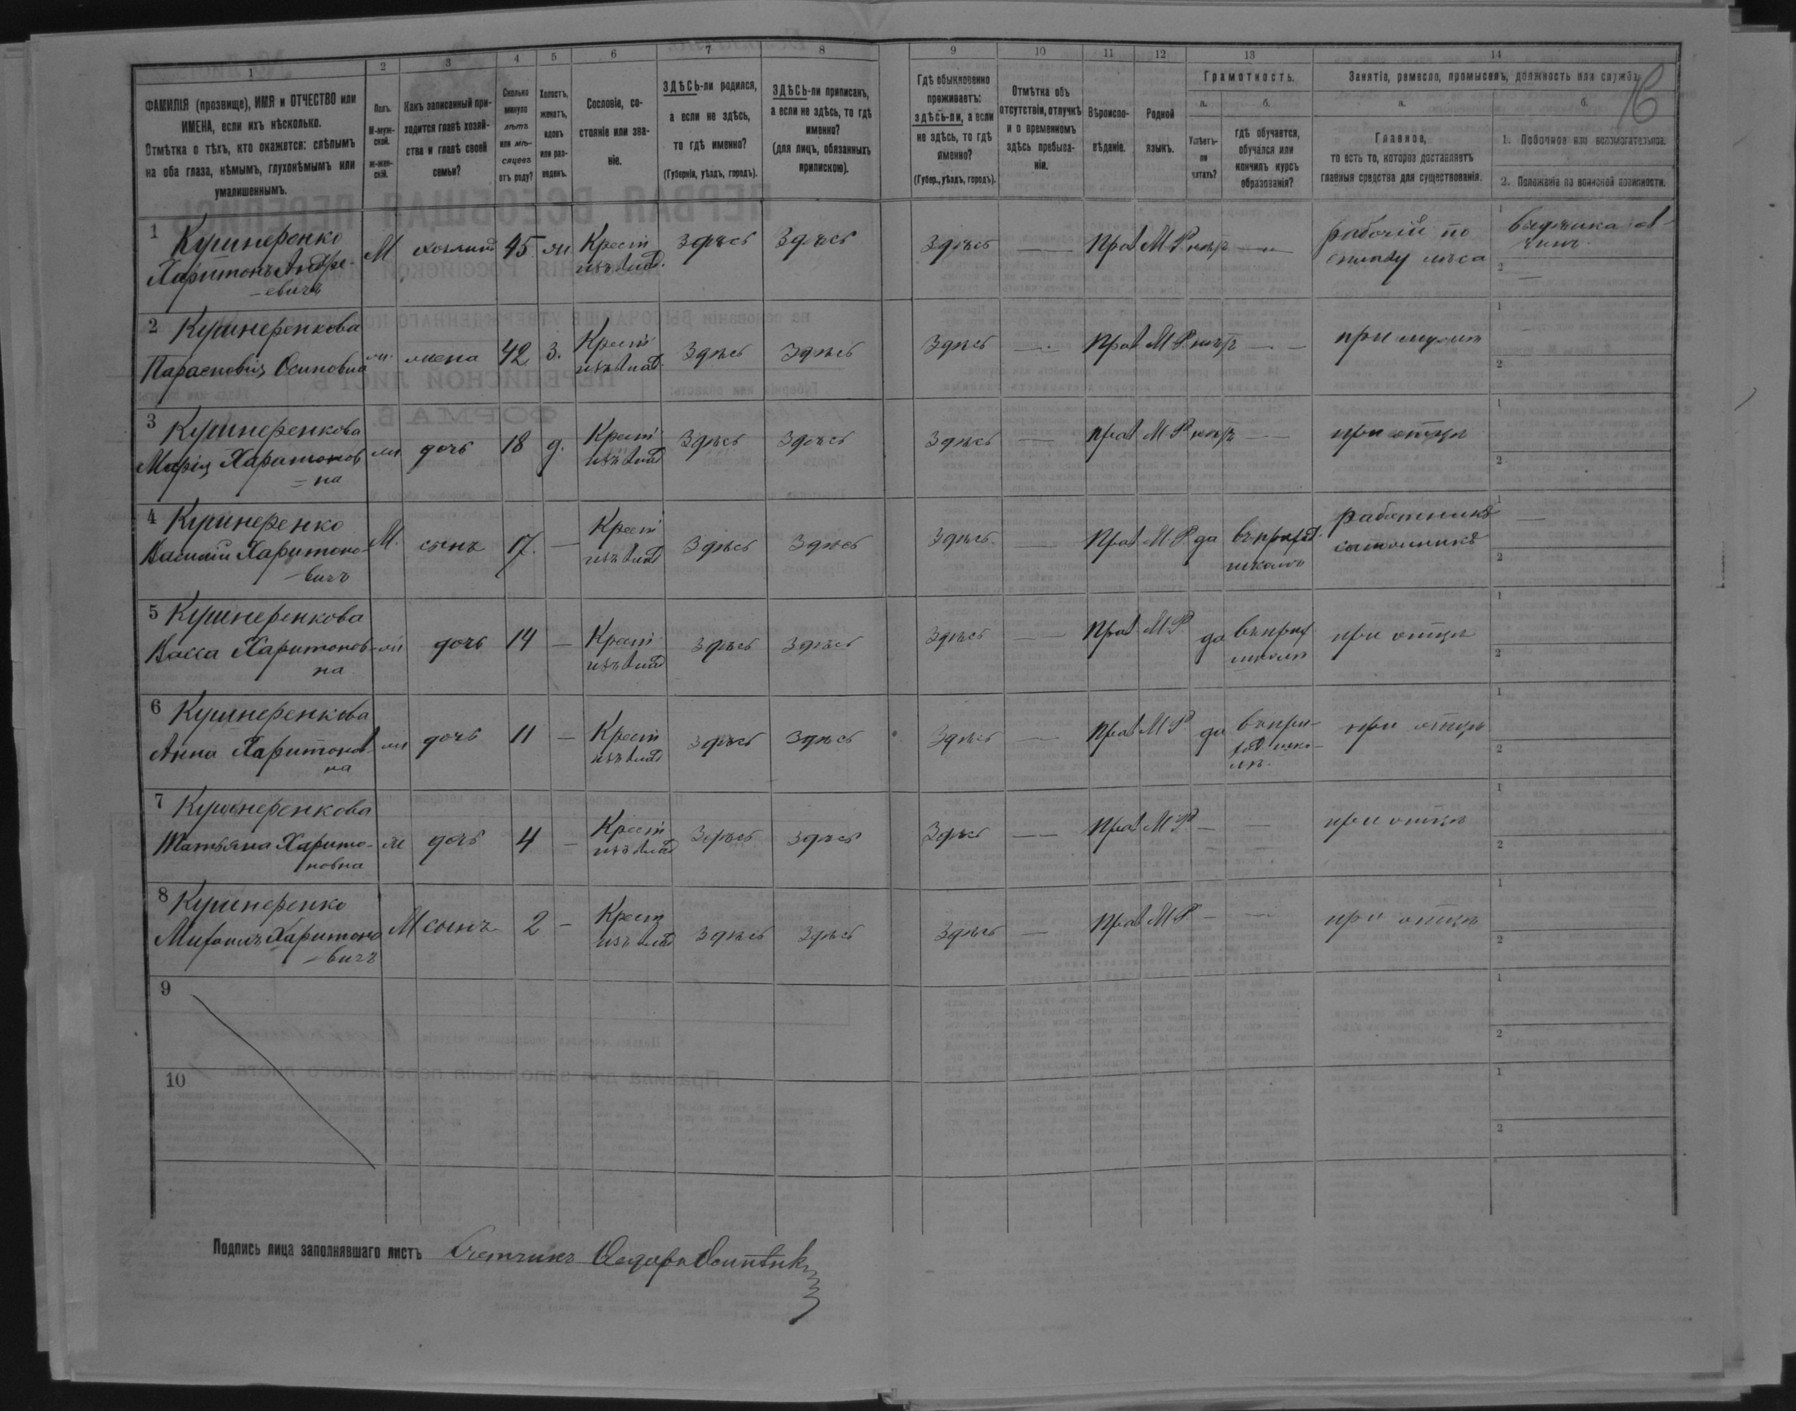 1
ФАМИЛІЯ (прозвище), ИМЯ и ОТЧЕСТВО или
ИМЕНА, если ихъ нѣсколько.
Отмѣтка о тѣхъ, кто окажется: слѣпымъ
на оба глаза, нѣмымъ, глухонѣмымъ или
умалишеннымъ.
2
Полъ.
М-муж-
ской.
Ж-жен-
скій.
3
Какъ записанный при-
ходится главѣ хозяй-
ства и главѣ своей
семьи?
4
Сколько
минуло
лѣтъ
или мѣ-
сяцевъ
отъ роду?
5
Холостъ,
женатъ,
вдовъ
или раз-
веденъ.
6
Сословіе, со-
стояніе или зва-
ніе.
7
ЗДѢСЬ-ли родился,
а если не здѣсь,
то гдѣ именно?
(Губернія, уѣздъ, городъ).
8
ЗДѢСЬ-ли приписанъ,
а если не здѣсь, то гдѣ
именно?
(для лицъ, обязанныхъ
припискою).
9
Гдѣ обыкновенно
проживаетъ:
здѣсь-ли, а если
не здѣсь, то гдѣ
именно?
(Губер., уѣздъ, городъ).
10
Отмѣтка объ
отсутствіи, отлучкѣ
и о временномъ
здѣсь пребыва-
ніи.
11
Вѣроиспо-
вѣданіе.
12
Родной
языкъ.
13
Грамотность.
а.
Умѣетъ-
ли
читать?
б.
гдѣ обучается,
обучался или
кончилъ курсъ
образованія?
14
Занятіе, ремесло, промыселъ, должность или служба.
а.
Главное,
то есть то, которое доставляетъ
главныя средства для существованія.
б.
1. Побочное или вспомогательное.
2. Положеніе по воинской повинности.
16
1 Кушнеренко
Харитонъ Андре-
евичъ
М хозяинъ 45 ж Крест
изъ влад.
Здѣсь Здѣсь Здѣсь — Прав М.Р. нѣтъ —
рабочій по
1
2 —
2 Кушнеренкова
Парасковія Осиповна
ж жена 42 З. Крест
изъ влад.
Здѣсь Здѣсь Здѣсь — Прав М.Р. нѣтъ — при мужѣ
1
2
3 Кушнеренкова
Марія Харитонов
=на
ж дочь 18 д. Крест
изъ влад
Здѣсь Здѣсь Здѣсь — Прав М.Р. нѣтъ — при отцѣ
1
2
4 Кушнеренко
Василій Харитоно-
-вичъ
М. сынъ 17. — Крест
изъ влад
Здѣсь Здѣсь Здѣсь — Прав М.Р. да въ приход.
школѣ
работникъ
1 —
2
5 Кушнеренкова
Васса Харитонов-
на
ж дочь 14 — Крест
изъ влад
Здѣсь Здѣсь Здѣсь — Прав М.Р. да въ прих
школѣ
при отцѣ
1
2
6 Кушнеренкова
Анна Харитонов
на
ж дочь 11 — Крест
изъ влад
Здѣсь Здѣсь Здѣсь — Прав М.Р. да въ при-
ход. шко-
лѣ.
при отцѣ
1
2
7 Кушнеренкова
Татьяна Харито-
новна
ж дочь 4 — Крест
изъ влад
Здѣсь Здѣсь Здѣсь — Прав М.Р. — — при отцѣ
1
2
8 Кушнеренко
Михаилъ Харитоно
-вичъ
М сынъ 2 — Крест
изъ влад
Здѣсь Здѣсь Здѣсь — Прав М.Р. — — при отцѣ
1
2
9
1
2
10
1
2
Подпись лица заполнявшаго листъ Счетчикъ